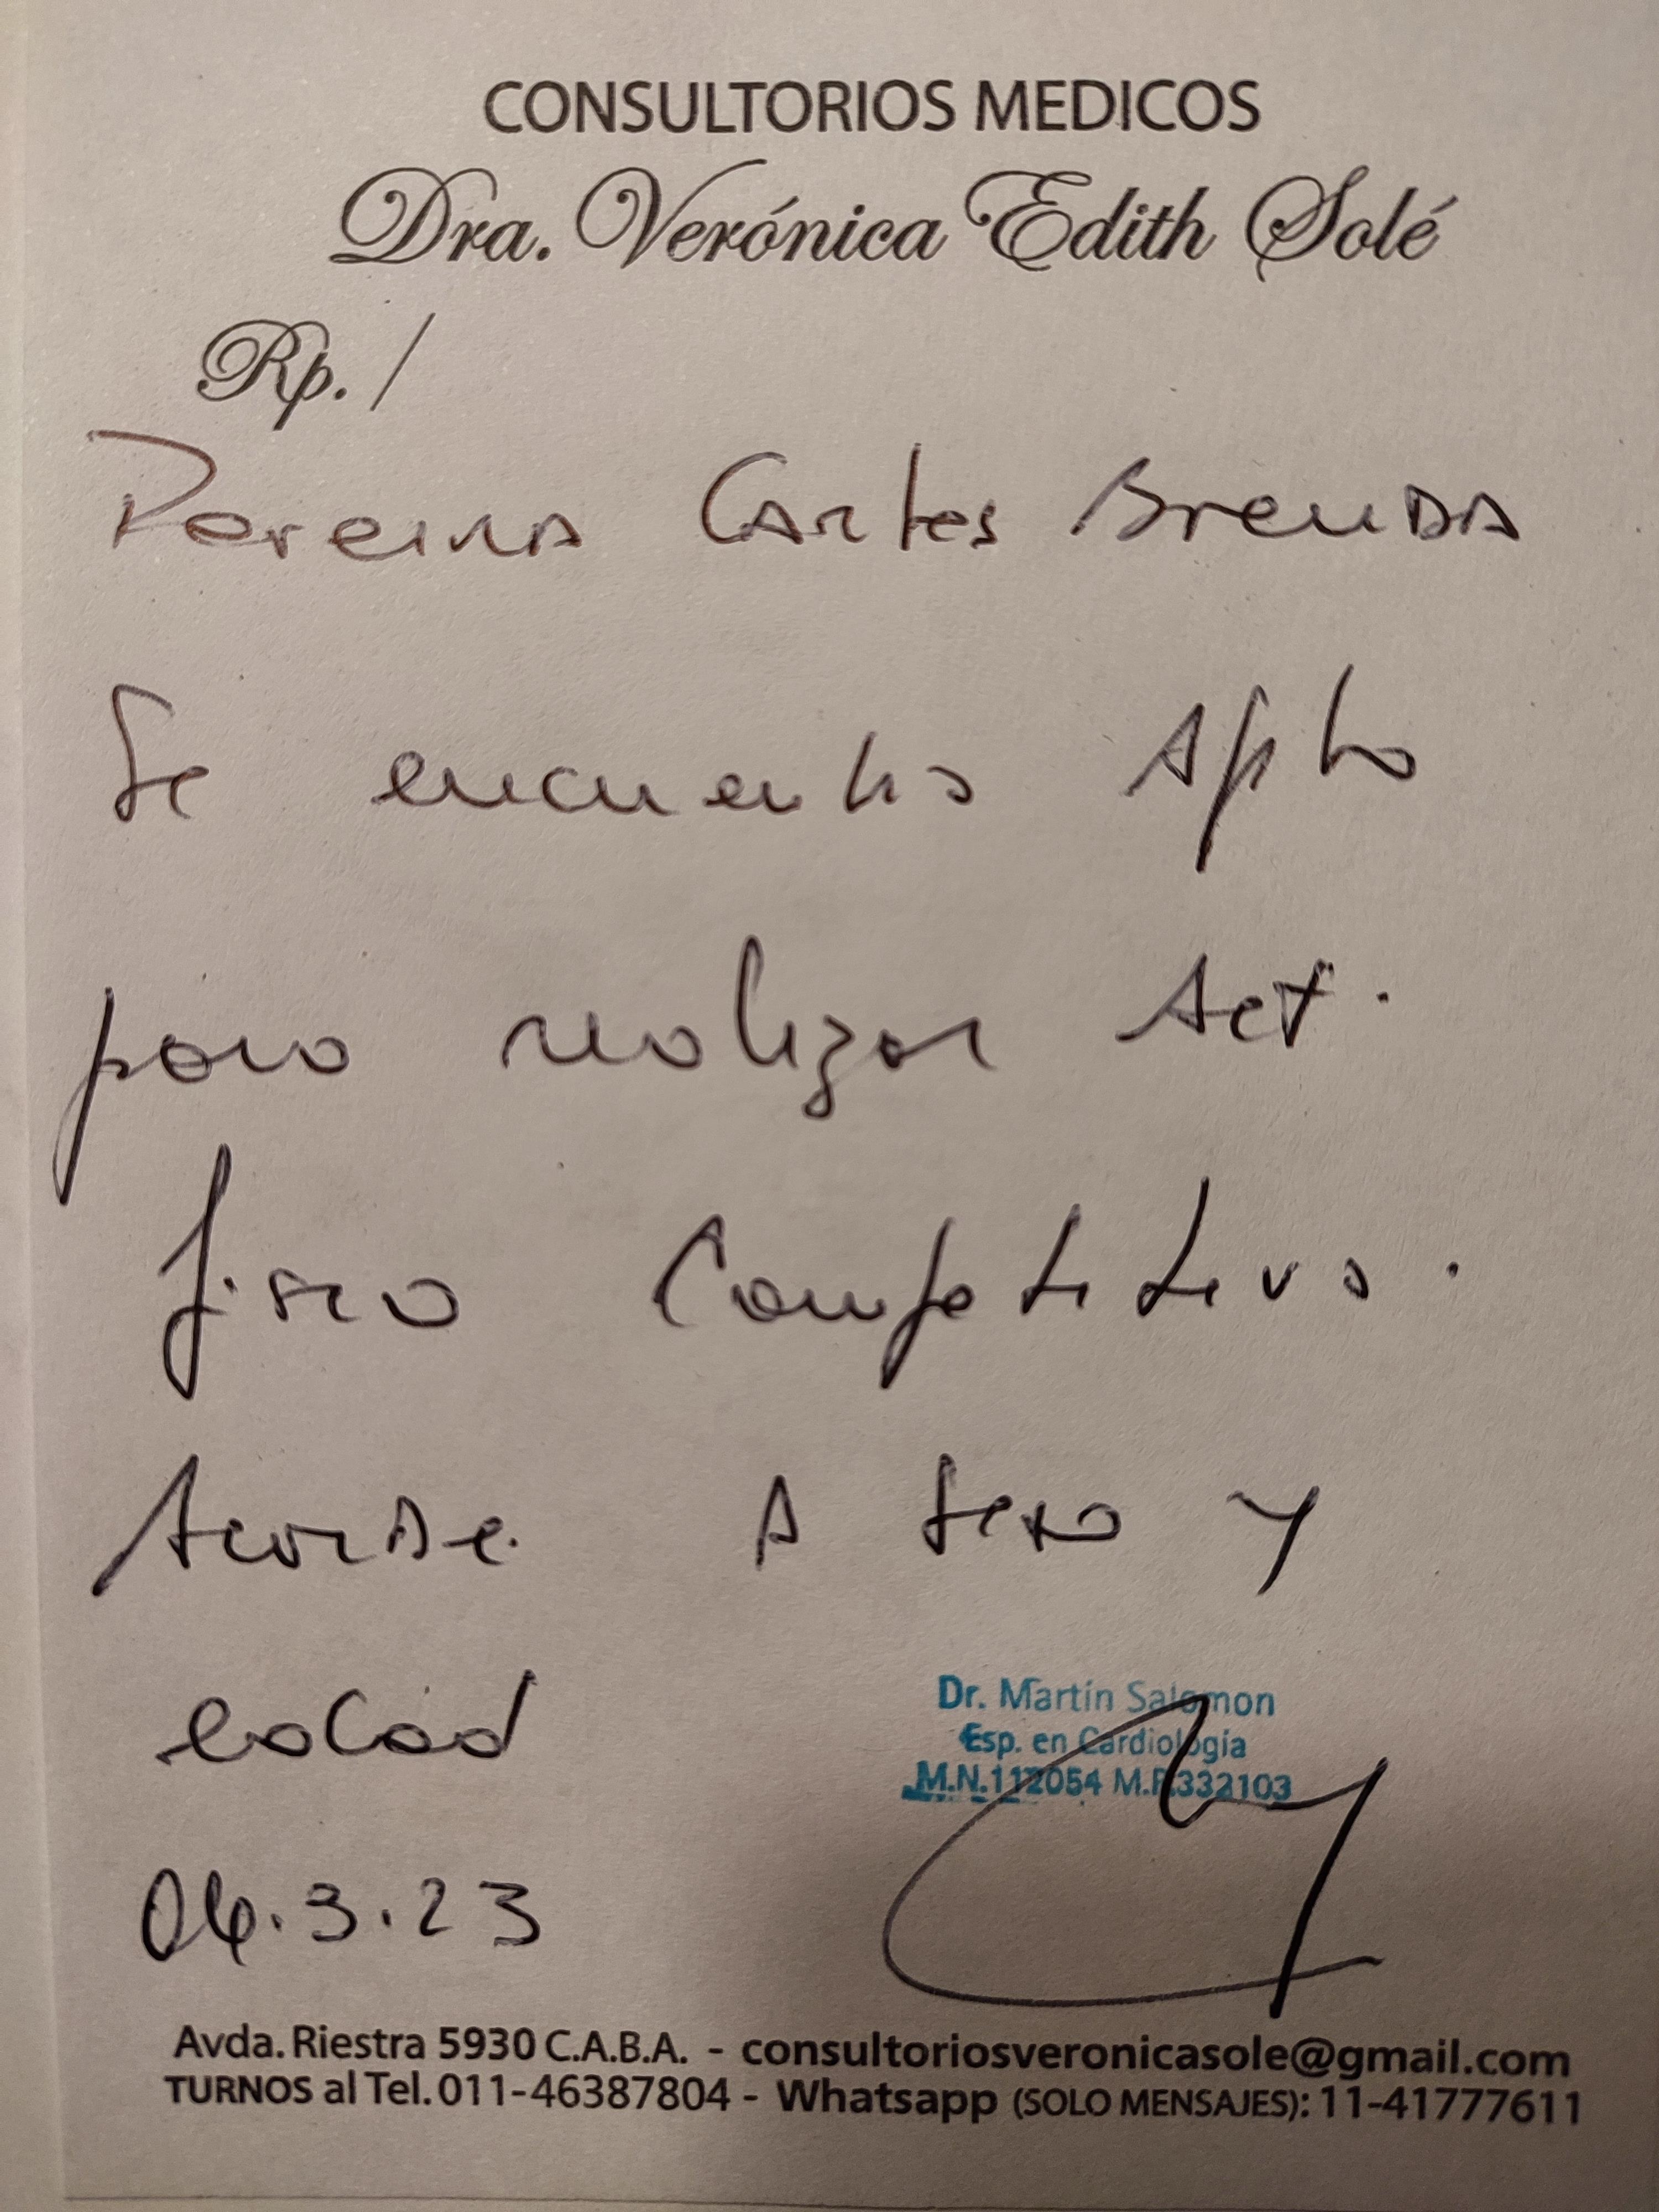 CONSULTORIOS MEDICOS
Dra. Verónica Edith Solé
Rp. /
Pereira Cartes Brenda
Se encuentra Apto
para realizar Act.
fisica Competitiva.
Acorde A sexo y
edad
Dr. Martín Salomon
Esp. en Cardiología
M.N.112054 M.P.332103
06.3.23
Avda. Riestra 5930 C.A.B.A. - consultoriosveronicasole@gmail.com
TURNOS al Tel. 011-46387804 - Whatsapp (SOLO MENSAJES): 11-41777611